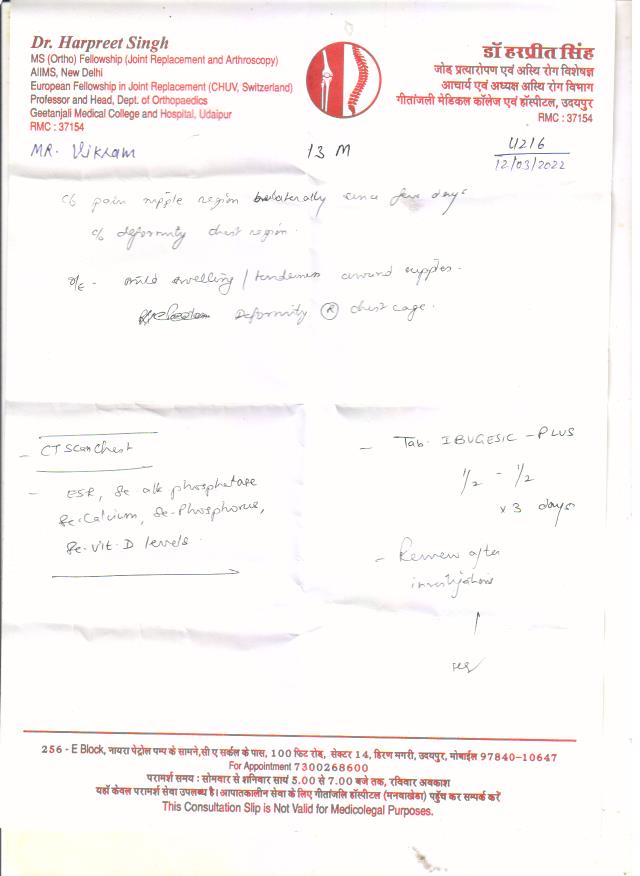 Dr. Harpreet Singh
MS (Ortho) Fellowship (Joint Replacement and Arthroscopy)
AIIMS, New Delhi
European Fellowship in Joint Replacement (CHUV, Switzerland)
Professor and Head, Dept. of Orthopaedics
Geetanjali Medical College and Hospital, Udaipur
RMC : 37154
डॉ हरप्रीत सिंह
जोड़ प्रत्यारोपण एवं अस्थि रोग विशेषज्ञ
आचार्य एवं अध्यक्ष अस्थि रोग विभाग
गीतांजली मेडिकल कॉलेज एवं हॉस्पीटल, उदयपुर
RMC : 37154
MR. Vikram
13 M
4216
12/03/2022
c/o pain nipple region bilaterally since few days
c/o deformity chest region.
o/E - mild swelling / tenderness around nipples.
Deformity (R) chest cage.
- CT Scan Chest
- ESR, Se alk phosphatase
Se-Calcium, Se-Phosphorus,
Se-Vit-D levels.
- Tab. IBUGESIC - PLUS
1/2 - 1/2
x 3 days
- Review after
investigations
256 - E Block, नायरा पेट्रोल पम्प के सामने, सी ए सर्कल के पास, 100 फिट रोड, सेक्टर 14, हिरण मगरी, उदयपुर, मोबाईल 97840-10647
For Appointment 7300268600
परामर्श समय : सोमवार से शनिवार सायं 5.00 से 7.00 बजे तक, रविवार अवकाश
यहाँ केवल परामर्श सेवा उपलब्ध है। आपातकालीन सेवा के लिए गीतांजलि हॉस्पीटल (मनवाखेडा) पहुँच कर सम्पर्क करें
This Consultation Slip is Not Valid for Medicolegal Purposes.